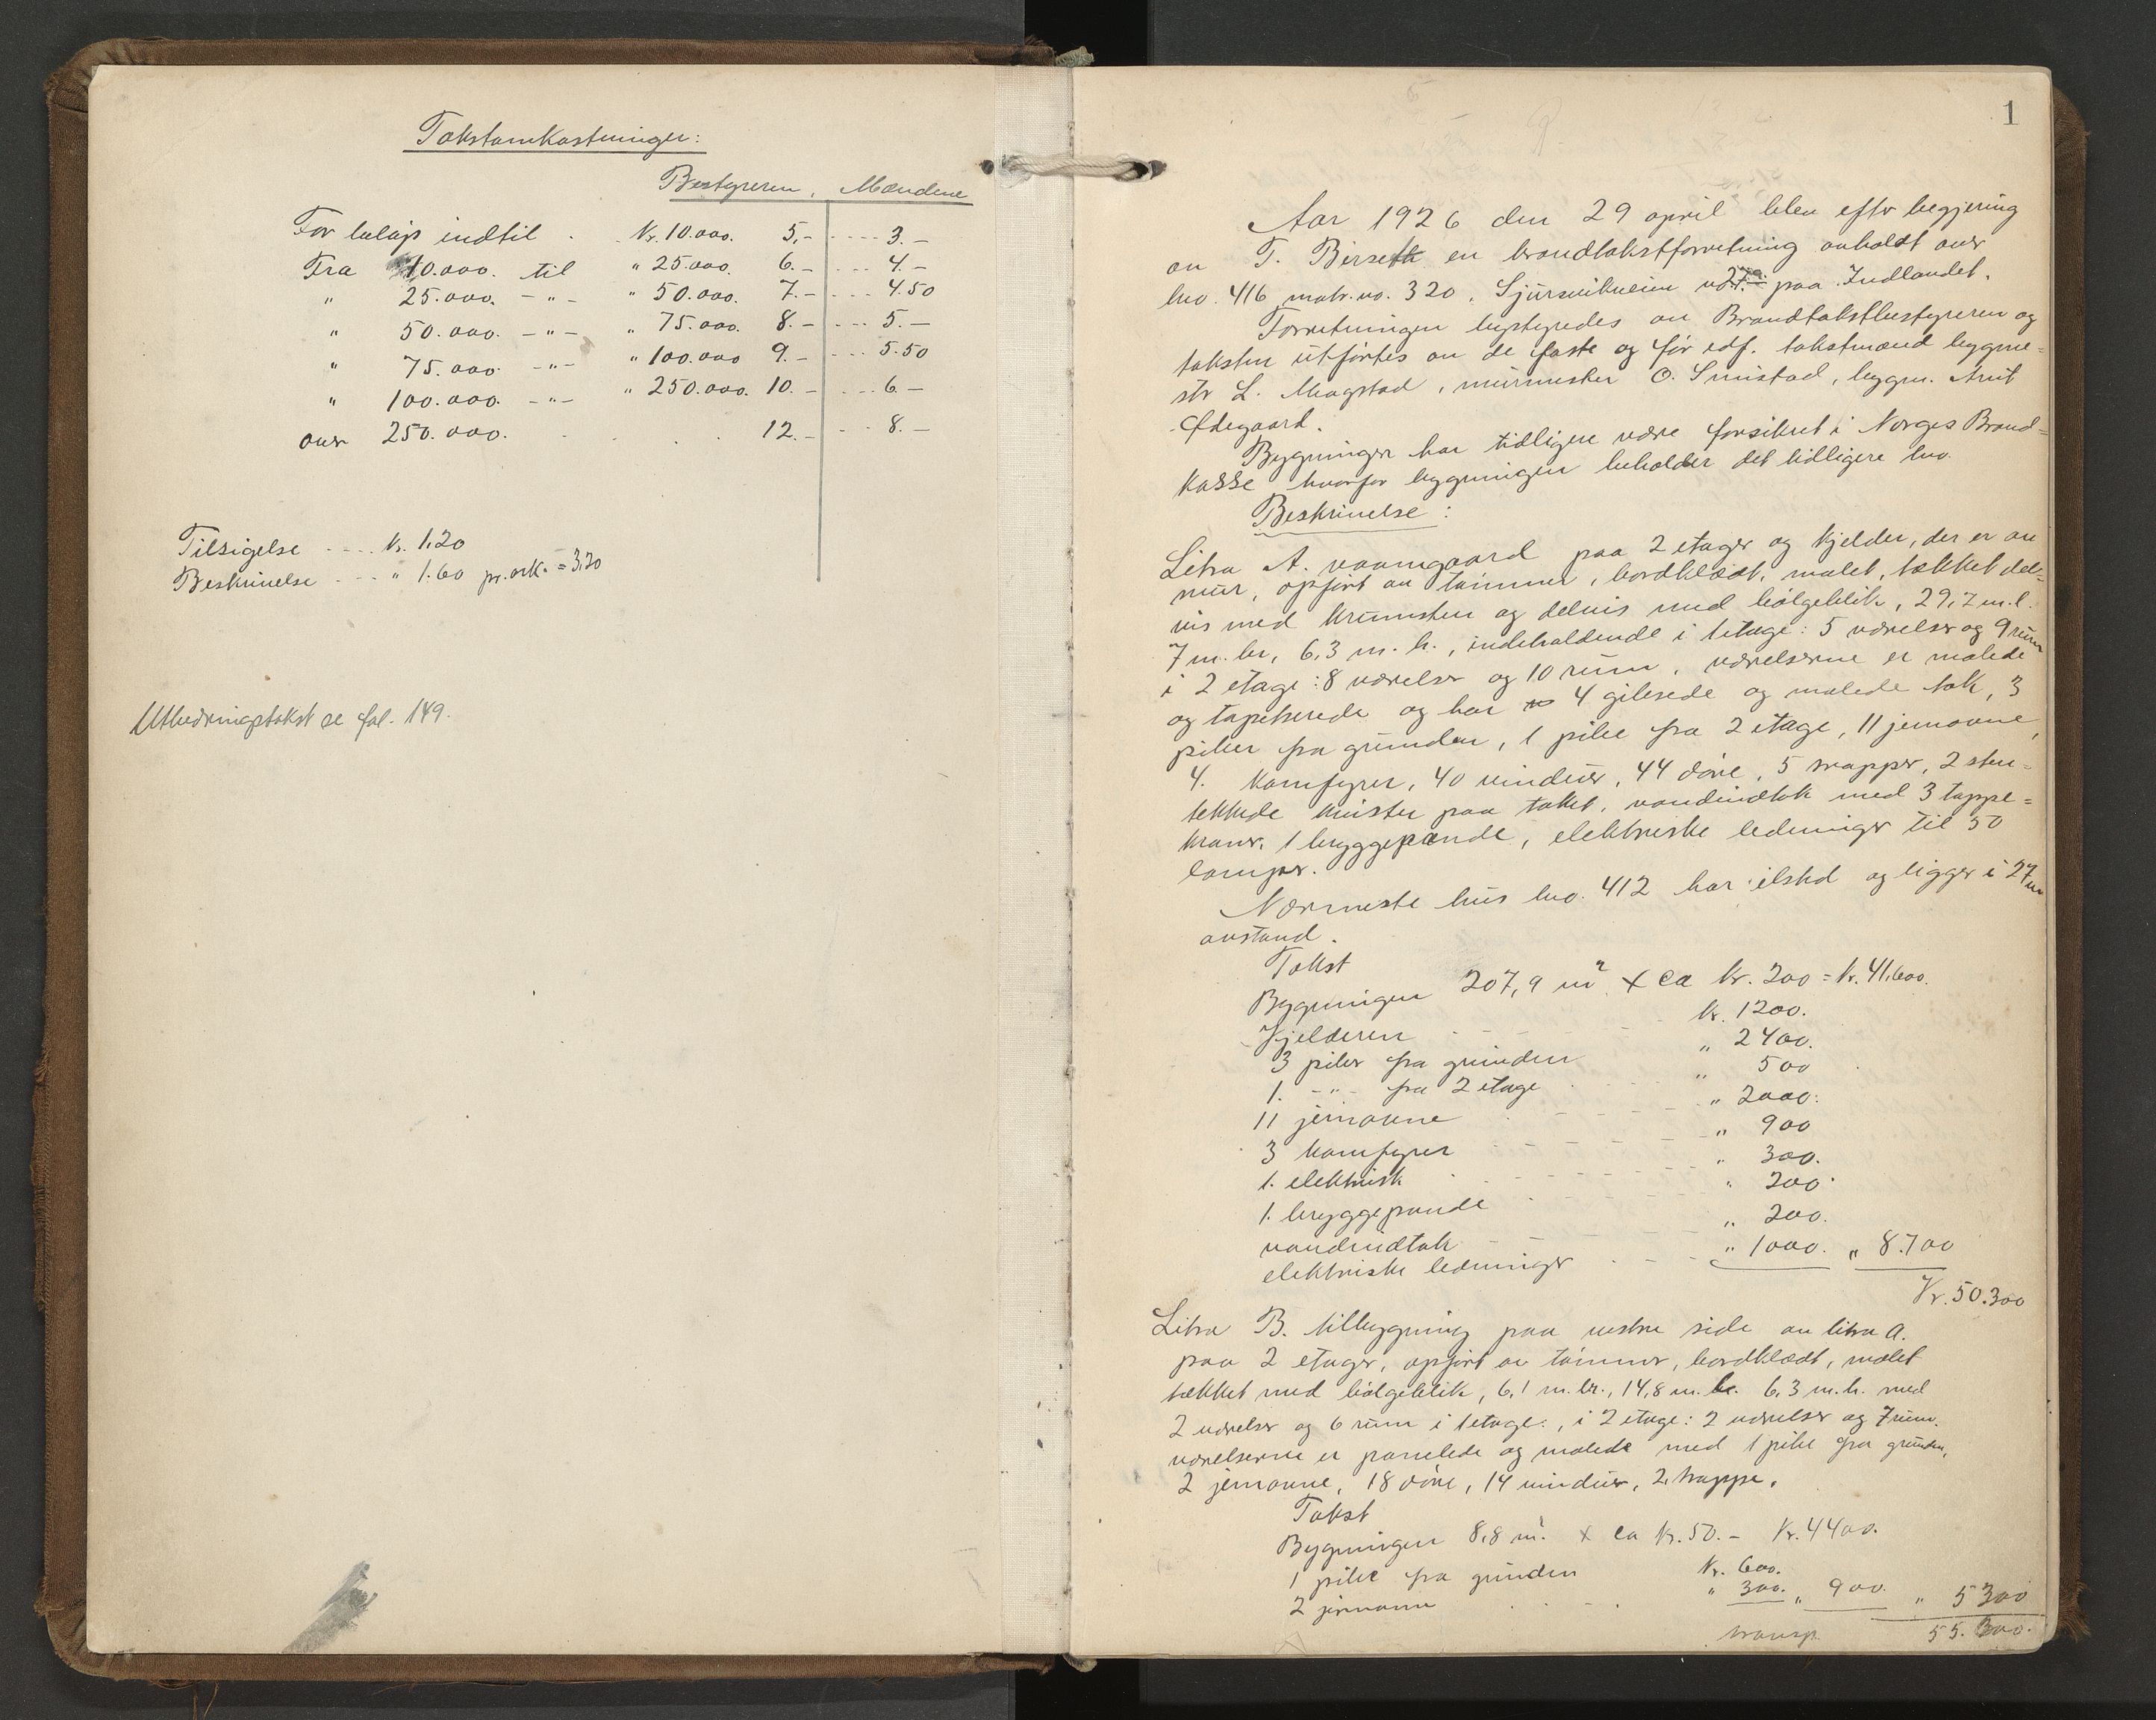 Takstomkostninger:
Bestyreren. Mændene
For beløp indtil . Kr. 10.000. 5,- .... 3.-
Fra 10.000. til " 25.000. 6.- ... 4.-
" 25.000. -"- " 50.000. 7.- ... 4.50
" 50.000. -"- " 75.000. 8.- ... 5.-
" 75.000. -"- " 100.000 9.- ... 5.50
" 100.000. -"- " 250.000. 10.- ... 6-
over 250.000. . . . 12.- .. 8.-
Tilsigelse .... kr. 1.20
Beskrivelse ... " 1.60 pr. ark. = 3.20
Utbedringstakst se fol. 149.
1
Aar 1926 den 29 april blev eftr begjæring
av T. Birseth en brandtakstforretning avholdt over
bno. 416 matr. no. 320, paa Indlandet.
Forretningen bestyredes av Brandtakstbestyreren og
taksten utførtes av de faste og før edf. takstmænd bygme=
str L. Magstad, murmester O. Smistad, bygm. Arnt
Ødegaard.
Bygninger har tidligere være forsikret i Norges Brand=
kasse hvorfor bygningen beholder det tidligere bno.
Beskrivelse:
Litra A. vaaningaard paa 2 etager og kjelder, der er av
mur, opført av tømmer, bordklædt, malet, tækket del=
vis med krumsten og delvis med bølgeblik, 29,7 m. l.
7 m. br, 6,3 m. h., indeholdende i 1 etage: 5 værelser og 9 rum
i 2 etage: 8 værelser og 10 rum, værelserne er malede
og tapetserede og har 4 gibsede og malede tak, 3
piber fra grunden, 1 pibe fra 2 etage, 11 jernovne,
4. komfyrer, 40 vinduer, 44 døre, 5 trapper, 2 sten=
tekkede kvister paa taket, vandindtak med 3 tappe=
kraner, 1 bryggepande, elektriske ledninger til 50
lamper.
Nærmeste hus bno. 412 har ilsted og ligger i 27 m
avstand.
Takst
Bygningen 207,9 m² x ca kr. 200 = kr. 41,600.
Kjelderen - - - kr. 1200.
3 piber fra grunden " 2400.
1. -"- fra 2 etage . . " 500
11 jernovne - - - " 2000.
3 komfyrer - - - " 900
1. elektrisk - - - " 300.
1. bryggepande - - - " 200
vandindtak - - - " 200.
elektriske ledninger . - - " 1000. " 8.700
Kr. 50.300
Litra B. tilbygning paa vestre side av litra A.
paa 2 etager, opført av tømmer, bordklædt, malet
tækket med bølgeblik, 6,1 m. br., 14,8 m. br. 6,3 m. h. med
2 værelser og 6 rum i 1 etage:, i 2 etage: 2 værelser og 7 rum.
værelserne er panelede og malede med 1 pibe fra grunden,
2 jernovne, 18 døre, 14 vinduer, 2, trappe.
Takst
Bygningen 8,8 m². x ca kr. 50.- Kr. 4400.
1 pibe fra grunden Kr. 600.
2 jernovne . . - " 300. " 900. " 5 300
transp. 55.300.